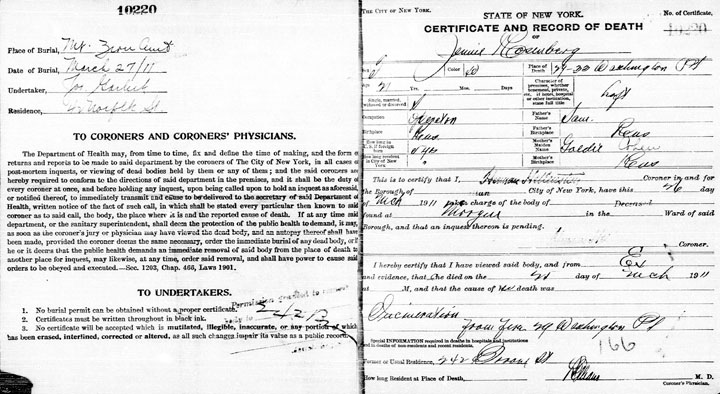 10220
Place of Burial, Mt. Zion Cmt
Date of Burial, March 27/11
Undertaker, Jos Garlick
Residence, Norfolk St
TO CORONERS AND CORONERS' PHYSICIANS.
The Department of Health may, from time to time, fix and define the time of making, and the form of
returns and reports to be made to said department by the coroners of The City of New York, in all cases of
post-mortem inquests, or viewing of dead bodies held by them or any of them; and the said coroners are
hereby required to conform to the directions of said department in the premises, and it shall be the duty of
every coroner at once, and before holding any inquest, upon being called upon to hold an inquest as aforesaid,
or notified thereof, to immediately transmit and cause to be delivered to the secretary of said Department of
Health, written notice of the fact of such call, in which shall be stated every particular then known to said
coroner as to said call, the body, the place where it is and the reported cause of death. If at any time said
department, or the sanitary superintendent, shall deem the protection of the public health to demand it, may,
as soon as the coroner's jury or physician may have viewed the dead body, and an autopsy thereof shall have
been made, provided the coroner deems the same necessary, order the immediate burial of any dead body, or if
he or it deems that the public health demands an immediate removal of said body from the place of death to
another place for inquest, may likewise, at any time, order said removal, and shall have power to cause said
orders to be obeyed and executed.—Sec. 1203, Chap. 466, Laws 1901.
TO UNDERTAKERS.
Permission granted to remove
body to
24213
1. No burial permit can be obtained without a proper certificate.
2. Certificates must be written throughout in black ink.
3. No certificate will be accepted which is mutilated, illegible, inaccurate, or any portion of which
has been erased, interlined, corrected or altered, as all such changes impair its value as a public record.
THE CITY OF NEW YORK.
STATE OF NEW YORK.
No. of Certificate,
CERTIFICATE AND RECORD OF DEATH
10220
OF
Jennie Rosenberg
Color W
Place of Death 29-30 Washington Pl
21 Yrs. Mos. Days
Character of premises, whether tenement, private, etc. If hotel, hospital or other institution, state full title
Loft
Single, married, widowed or divorced S
Occupation Operator
Father's Name Sam.
Birthplace Russ
Father's Birthplace Russ
How long in U. S. if foreign born 4 yrs
Mother's Maiden Name Goldie Cohen
How long resident in City of New York "
Mother's Birthplace Russ
This is to certify that I, Coroner in and for
the Borough of City of New York, have this 26 day
of Mch 1911 charge of the body of Deceased
found at Morgue in the Ward of said
Borough, and that an inquest thereon is pending.
Coroner.
I hereby certify that I have viewed said body, and from Ex
and evidence, that she died on the day of Mch 1911
at M, and that the cause of her death was
Incineration
from fire 29 Washington Pl
166
Special INFORMATION required in deaths in hospitals and institutions
and in deaths of non-residents and recent residents.
Former or Usual Residence, 242 Broome St
How long Resident at Place of Death, M. D.
Coroner's Physician.